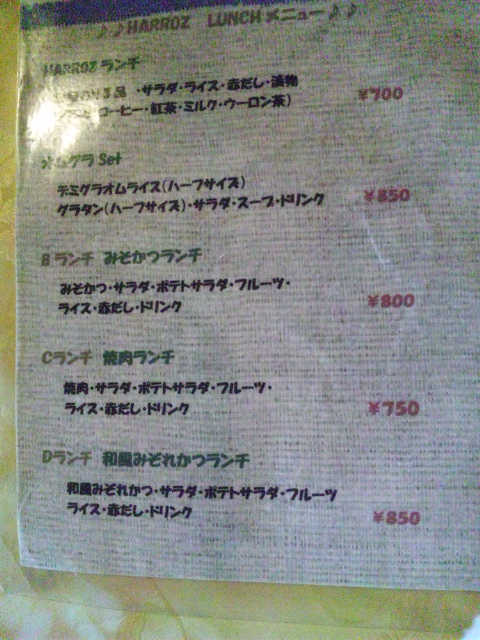 ♪♪HARROZ LUNCHメニュー♪♪
HARROZランチ
品・サラダ・ライス・赤だし・漬物
コーヒー・紅茶・ミルク・ウーロン茶)
¥700
オムグラ Set
デミグラオムライス(ハーフサイズ)
グラタン(ハーフサイズ)・サラダ・スープ・ドリンク
¥850
Bランチ みそかつランチ
みそかつ・サラダ・ポテトサラダ・フルーツ・
ライス・赤だし・ドリンク
¥800
Cランチ 焼肉ランチ
焼肉・サラダ・ポテトサラダ・フルーツ・
ライス・赤だし・ドリンク
¥750
Dランチ 和風みぞれかつランチ
和風みぞれかつ・サラダ・ポテトサラダ・フルーツ
ライス・赤だし・ドリンク
¥850